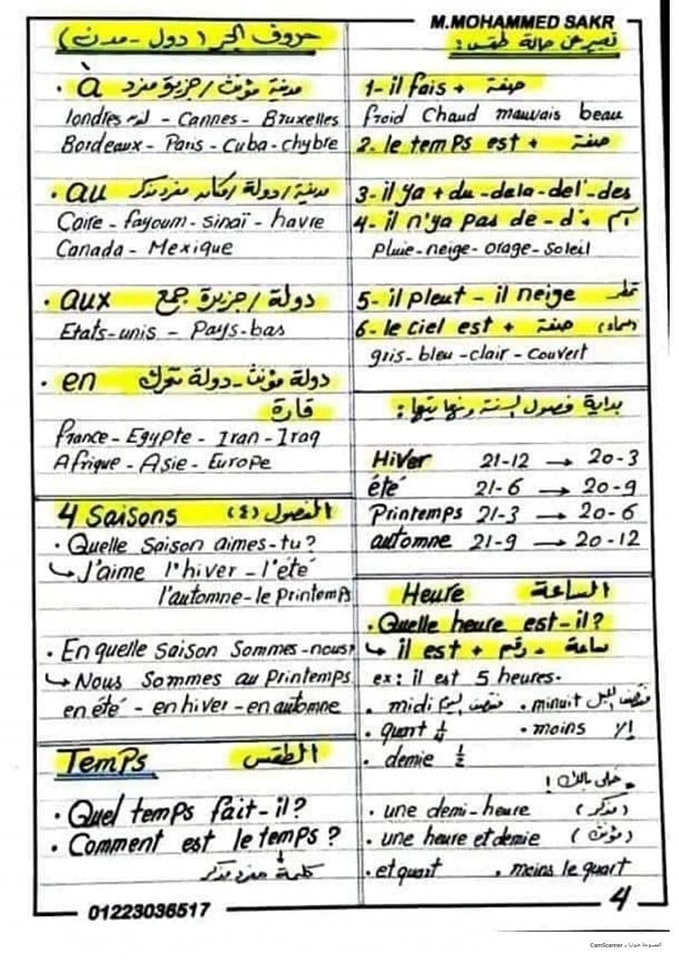 M.MOHAMMED SAKR
حروف الجر (دول - مدن)
. à مدينة مؤنث / جزيرة مفرد
londres لندن - Cannes - Bruxelles
Bordeaux - Paris - Cuba - chybre
. au مدينة / دولة / مكان مفرد مذكر
Caire - fayoum - sinaï - havre
Canada - Mexique
. aux دولة / جزيرة جمع
Etats-unis - Pays-bas
. en دولة مؤنث - دولة متحرك
قارة
france - Egypte - Iran - Iraq
Afrique - Asie - Europe
4 saisons الفصول (٤)
. Quelle saison aimes-tu?
↳ J'aime l'hiver - l'été
l'automne - le printemps
. En quelle saison sommes-nous?
↳ Nous sommes au printemps
en été - en hiver - en automne
Temps الطقس
. Quel temps fait-il?
. Comment est le temps?
كلمة مفرد مذكر
تعبير عن حالة طقس:
1- il fais + صفة
froid chaud mauvais beau
2. le temps est + صفة
3- il ya + du - dela - del' - des
4- il n'ya pas de - d' + اسم
pluie - neige - orage - soleil
5- il pleut - il neige تمطر
6- le ciel est + صفة (سماء)
gris - bleu - clair - couvert
بداية فصول السنة ونهايتها:
Hiver 21-12 → 20-3
été 21-6 → 20-9
Printemps 21-3 → 20-6
automne 21-9 → 20-12
Heure الساعة
. Quelle heure est-il?
↳ il est + رقم - ساعة
ex: il est 5 heures.
. midi منتصف اليوم . minuit منتصف الليل
. quart ¼ . moins إلا
. demie ½
خلى بالك!
. une demi-heure (مذكر)
. une heure et demie (مؤنث)
. et quart . moins le quart
4
01223036517
CamScanner الممسوحة ضوئيا بـ